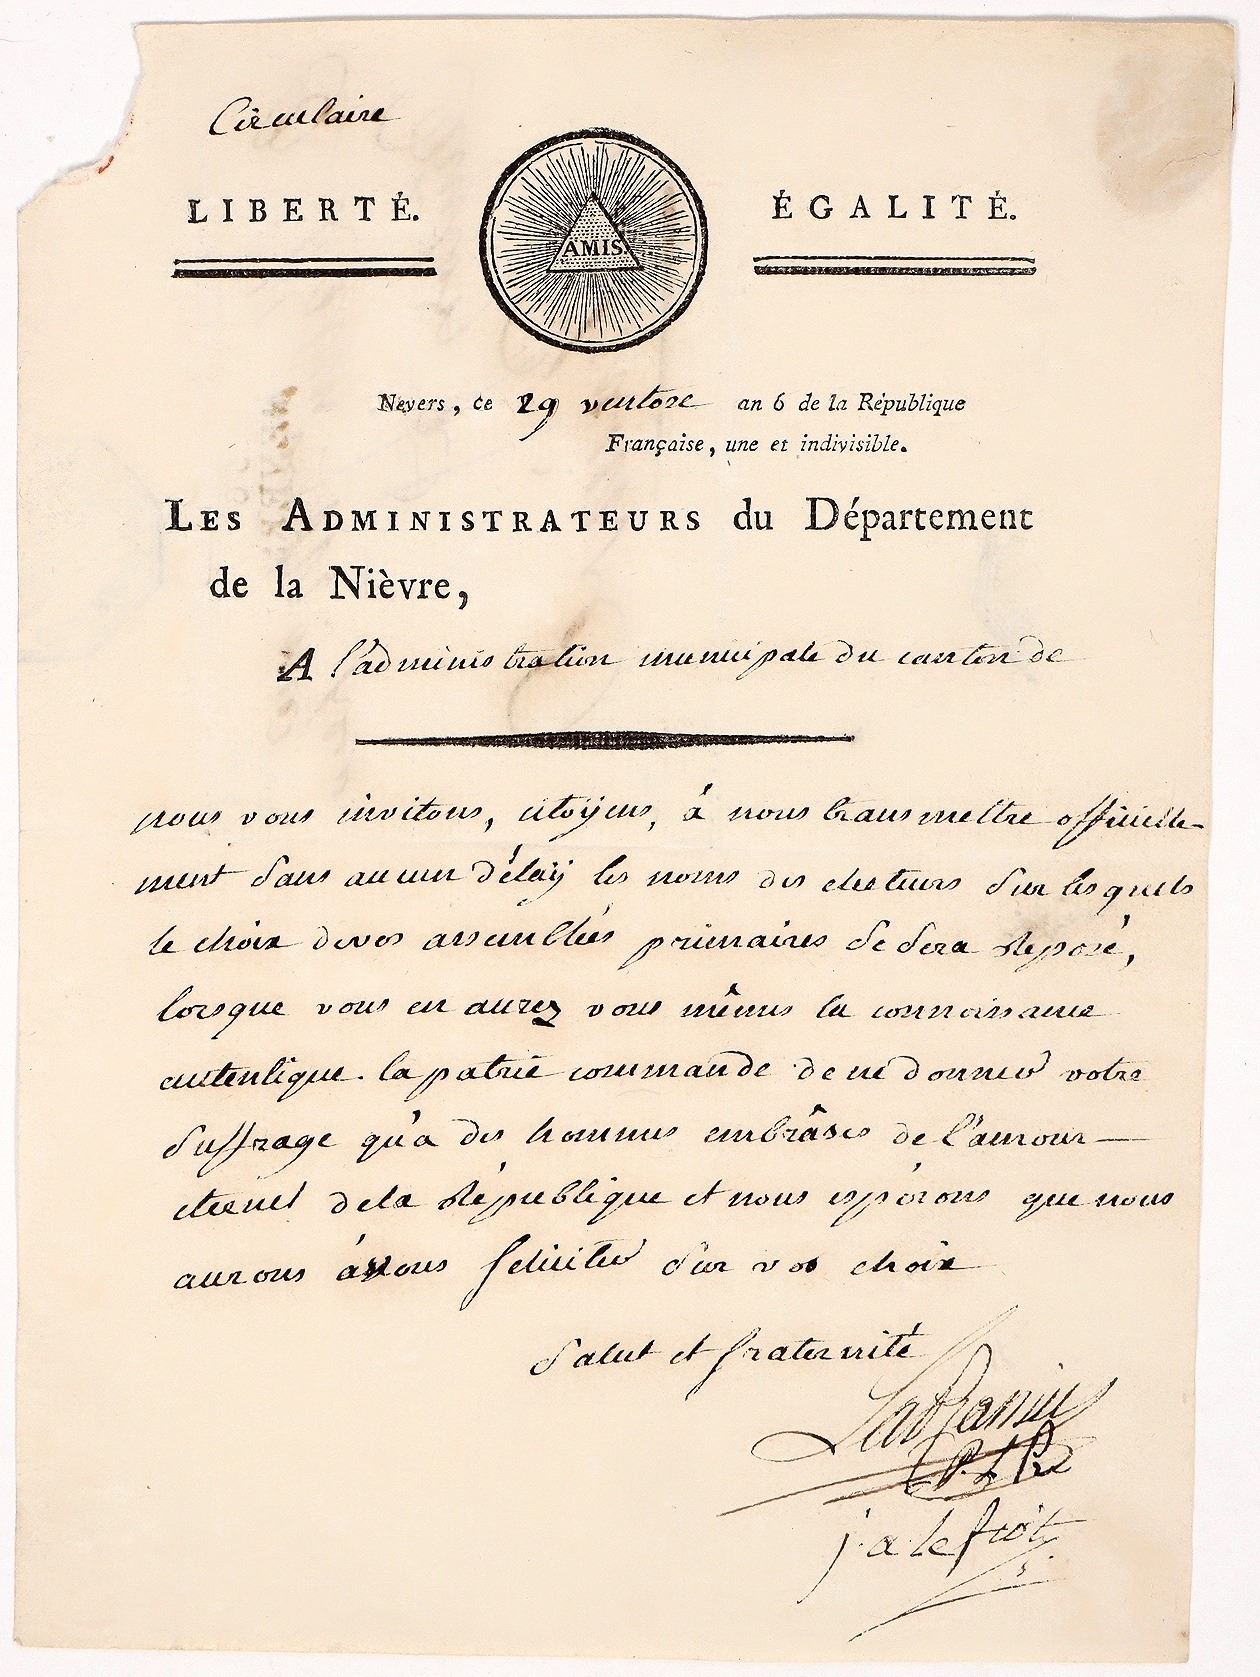 Circulaire
LIBERTÉ.
AMIS
ÉGALITÉ.
Nevers, ce 29 ventose an 6 de la République
Française, une et indivisible.
LES ADMINISTRATEURS du Département
de la Nièvre,
A l'administration municipale du canton de
nous vous invitons, citoÿens, à nous transmettre officielle-
ment sans aucun délaÿ les noms des electeurs sur lesquels
le choix de vos assemblées primaires se sera reposé,
lorsque vous en aurez vous mêmes la connoissance
autentique. la patrie commande de ne donner votre
suffrage qu'à des hommes embrâsés de l'amour
eternel de la République et nous espérons que nous
aurons à vous feliciter sur vos choix
Salut et fraternité
j. a. le